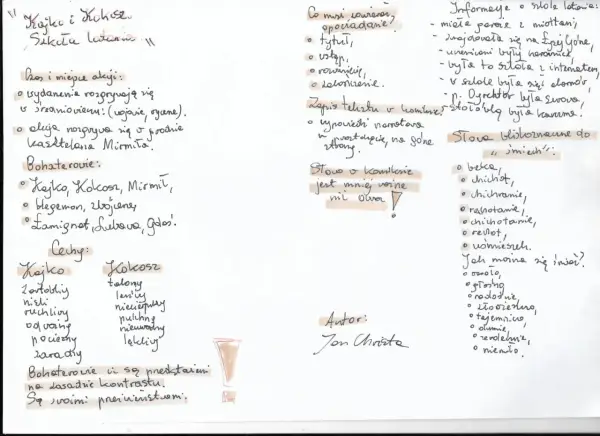 "Kajko i Kokosz.
Szkoła latania"
Czas i miejsce akcji:
wydarzenia rozgrywają się
w średniowieczu: (wojowie, rycerze).
akcja rozgrywa się w grodzie
kasztelana Mirmiła.
Bohaterowie:
Kajko, Kokosz, Mirmił,
Hegemon, zbójcerze,
Łamignat, Lubawa, Gdoś.
Cechy:
Kajko
niski
ruchliwy
odważny
pocieszny
zaradny
Kokosz
leniwy
niecierpliwy
pulchny
lękliwy
Bohaterowie ci są przedstawieni
na zasadzie kontrastu.
Są swoimi przeciwieństwami.
!
Co musi zawierać
opowiadanie?
tytuł,
wstęp,
rozwinięcie,
zakończenie.
Zapis tekstu w komiksie:
wypowiedź narratora
w prostokącie, na górze
strony.
Słowo w komiksie
jest mniej ważne
niż obraz!
Autor:
Jan Christa
Informacje o szkole latania:
- miała garaże z miotłami,
- znajdowała się na Łysej Górze,
- uczennicami były czarownice,
- była to szkoła z internatem,
- w szkole było sześć
- p. Dyrektor była surowa,
- stołówką była karczma.
Słowa bliskoznaczne do
"śmiech":
beka,
chichot,
chichranie,
rechotanie,
chichotanie,
rechot,
uśmieszek.
Jak można się śmiać?
wesoło,
głośno
radośnie,
złowieszczo,
tajemniczo,
dumnie,
serdecznie,
niemiło.